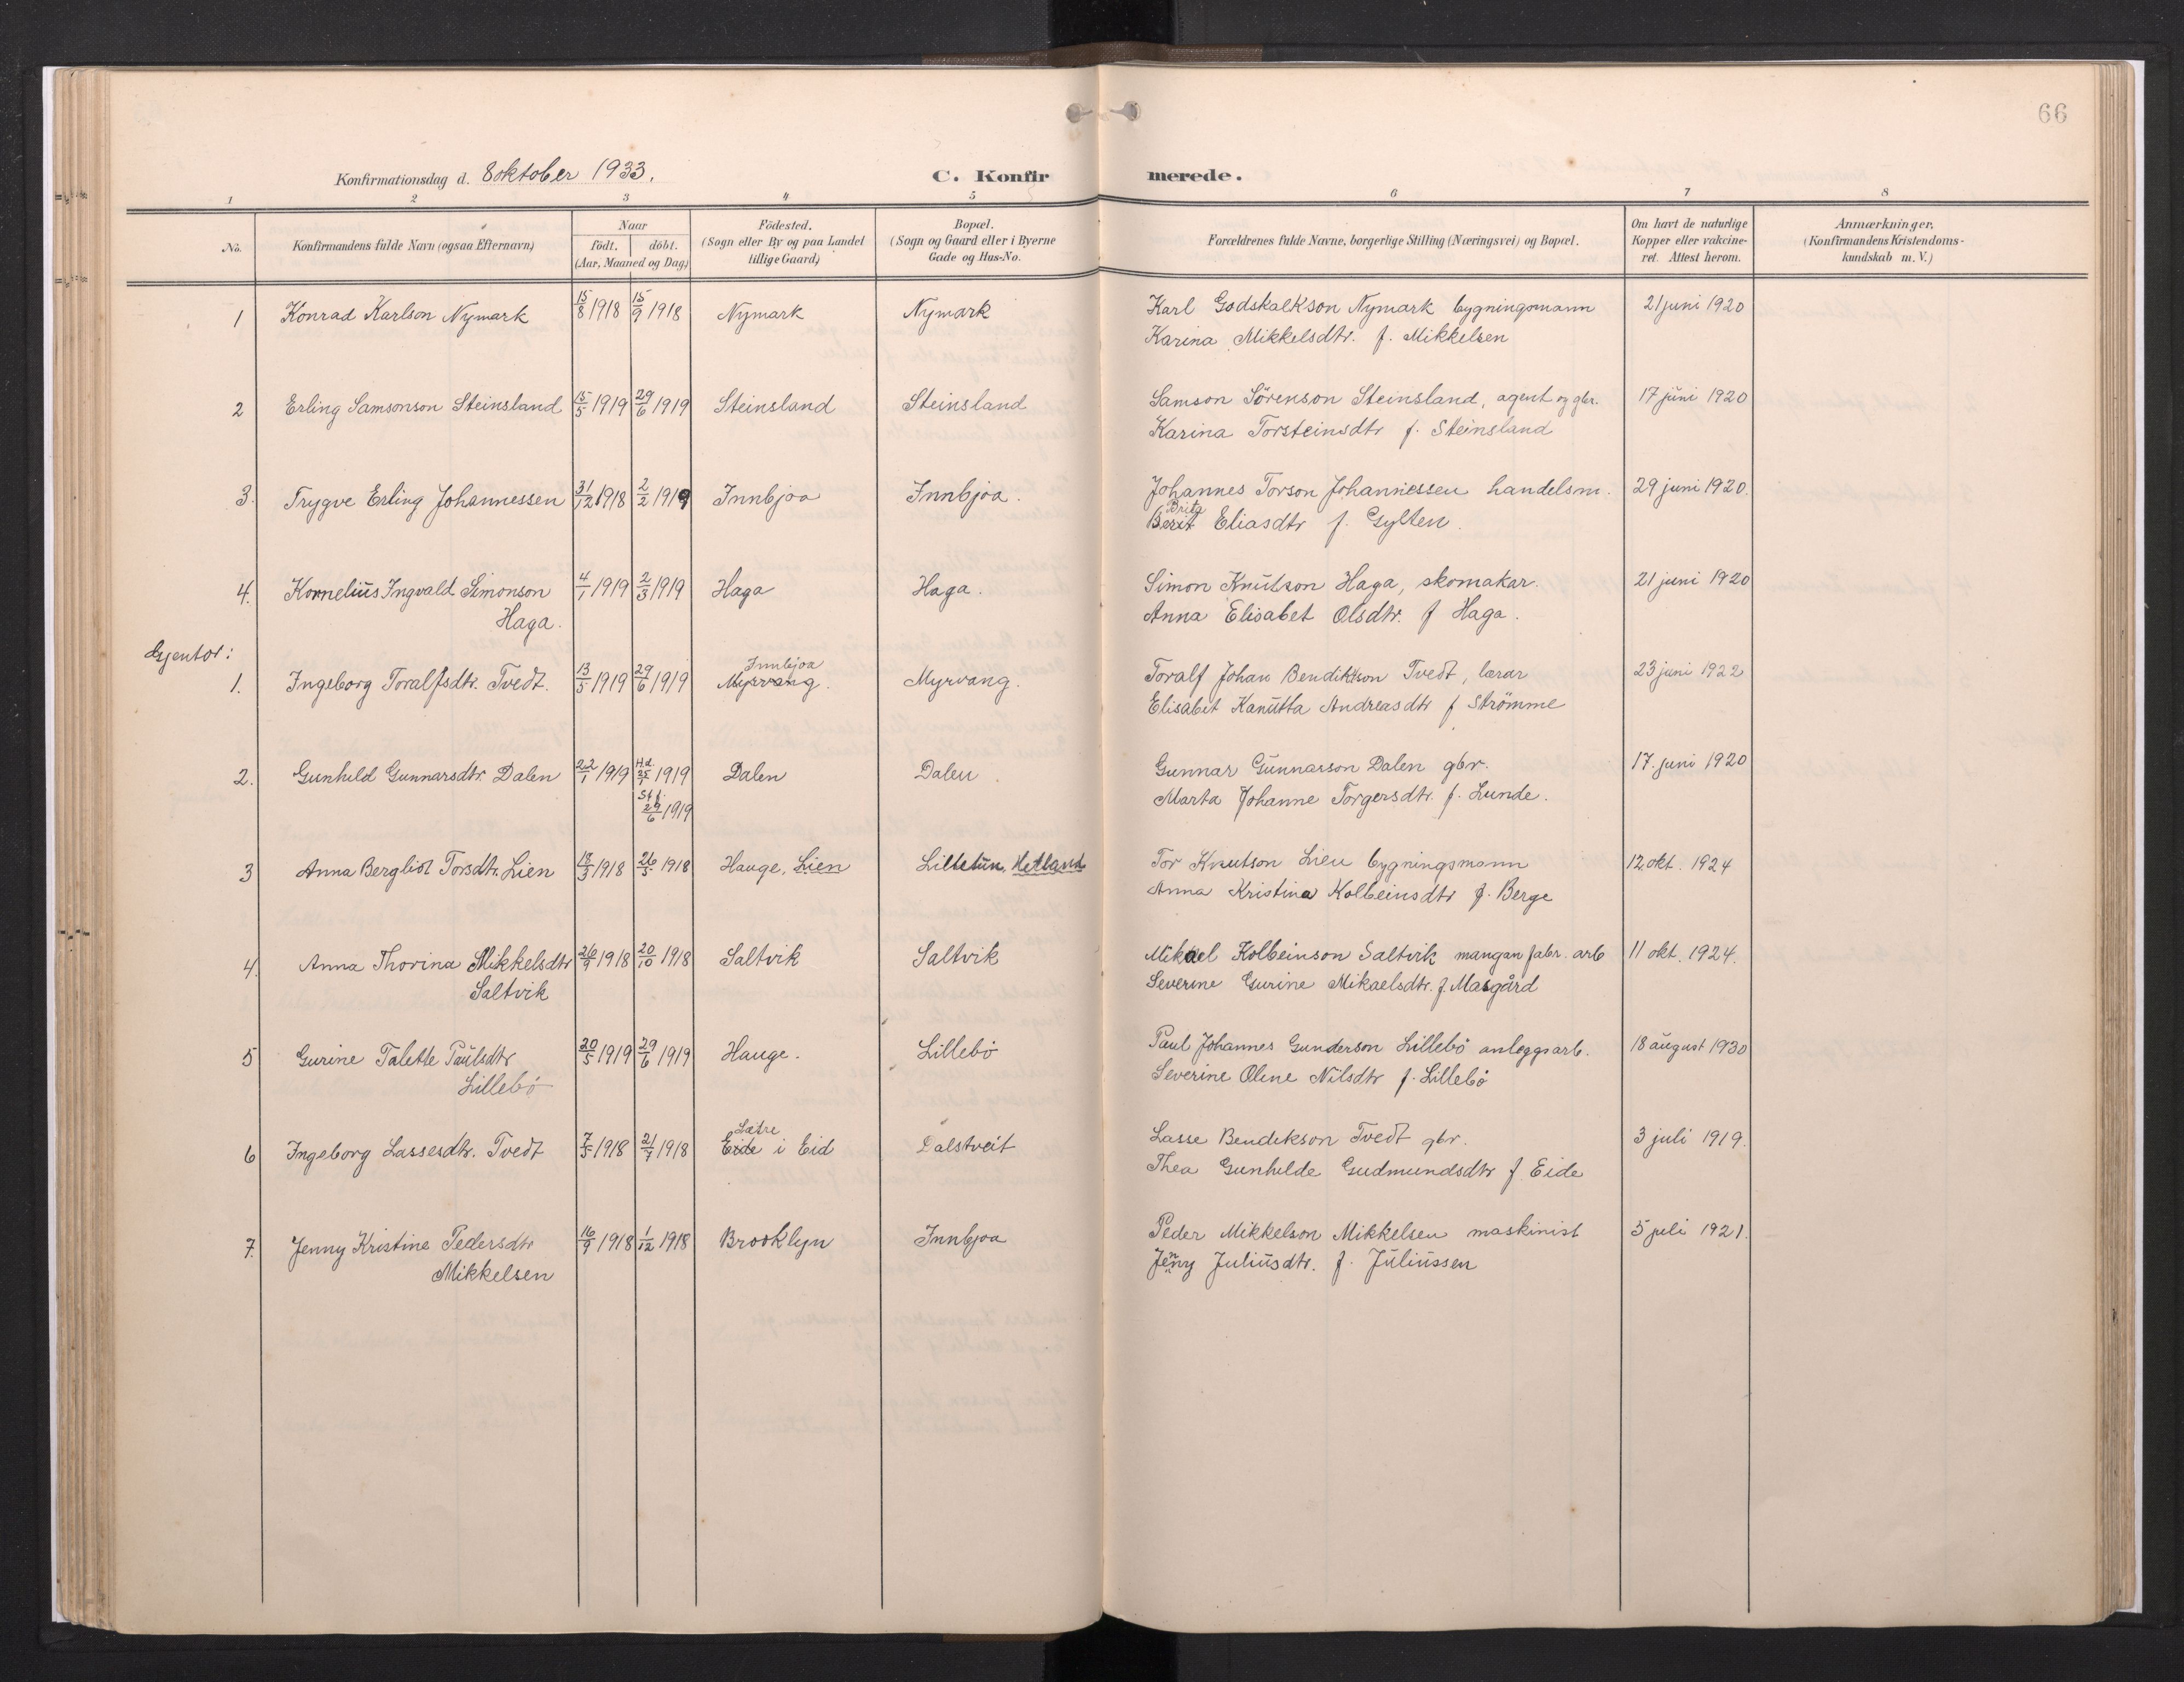 66
Konfirmationsdag d. 8 oktober 1933.
C. Konfirmerede.
1 2 3 4 5 6 7 8
No.
Konfirmandens fulde Navn (ogsaa Efternavn)
Naar
født. døbt.
(Aar, Maaned og Dag.)
Fødested.
(Sogn eller By og paa Landet
tillige Gaard)
Bopæl.
(Sogn og Gaard eller i Byerne
Gade og Hus-No.
Forældrenes fulde Navne, borgerlige Stilling (Næringsvei) og Bopæl.
Om havt de naturlige
Kopper eller vakcine-
ret. Attest herom.
Anmærkninger.
(Konfirmandens Kristendoms-
kundskab m. V.)
1 Konrad Karlson Nymark 15/8 1918 15/9 1918 Nymark Nymark Karl Godskalkson Nymark bygningsmann 21 juni 1920
Karina Mikkelsdtr. f. Mikkelsen
2 Erling Samsonson Steinsland 15/5 1919 29/6 1919 Steinsland Steinsland Samson Sörenson Steinsland, agent og gbr. 17 juni 1920
Karina Torsteinsdtr f. Steinsland
3. Trygve Erling Johannessen 31/12 1918 2/2 1919 Innbjoa Innbjoa. Johannes Torson Johannessen handelsm. 29 juni 1920.
Brita
Berit Eliasdtr f. Gylten.
4. Kornelius Ingvald Simonson 4/1 1919 2/3 1919 Haga Haga. Simon Knutson Haga, skomakar. 21 juni 1920
Haga. Anna Elisabet Olsdtr. f Haga.
Gjentor:
Innbjoa
1. Ingeborg Toralfsdtr. Tvedt. 13/5 1919 29/6 1919 Myrvang. Myrvang. Toralf Johan Bendikson Tvedt, lærar 23 juni 1922
Elisabet Kanutta Andreasdtr f Strömme
2. Gunhild Gunnarsdtr Dalen 22/1 1919 H.d. 25/1 1919 Dalen Dalen. Gunnar Gunnarson Dalen gbr. 17. juni 1920
St f. 29/6 1919 Marta Johanne Torgersdtr. f. Lunde.
3 Anna Bergliot Torsdtr. Lien 18/3 1918 26/5 1918 Hauge, Lien Liltetun, Hetland Tor Knutson Lien bygningsmann 12. okt. 1924
Anna Kristina Kolbeinsdtr f. Berge
4. Anna Thorina Mikkelsdtr 26/9 1918 20/10 1918 Saltvik Saltvik Mikael Kolbeinson Saltvik mangan fabr. arb 11 okt. 1924.
Saltvik Severine Gurine Mikaelsdtr. f. Masgård
5 Gurine Talette Paulsdtr 20/5 1919 29/6 1919 Hauge. Lillebö Paul Johannes Gunderson Lillebö anleggsarb. 18 august 1930
Lillebö Severine Oline Nilsdtr f. Lillebö
Lætre
6 Ingeborg Lassesdtr. Tvedt 7/5 1918 21/7 1918 Eide i Eid Dalstveit Lasse Bendikson Tvedt gbr. 3 juli 1919.
Thea Gunhilde Gudmundsdtr f Eide
7. Jenny Kristine Pedersdtr 16/9 1918 1/12 1918 Brooklyn Innbjoa Peder Mikkelson Mikkelsen maskinist 5 juli 1921.
Mikkelsen Jenny Juliusdtr. f. Juliussen